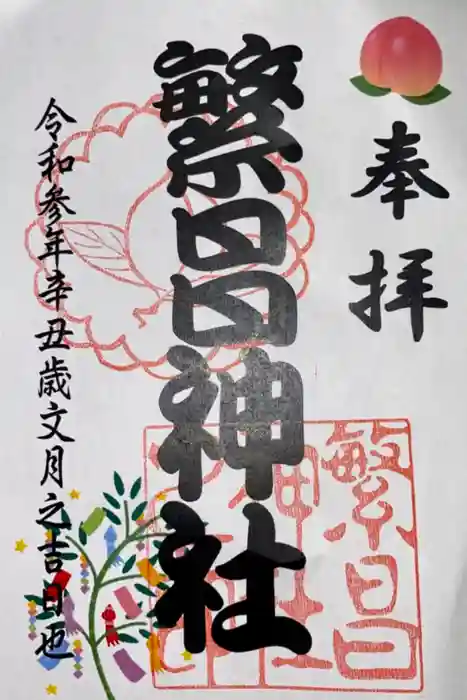 奉拝
繁昌神社
令和参年辛丑歳文月之吉日也
繁昌
神社